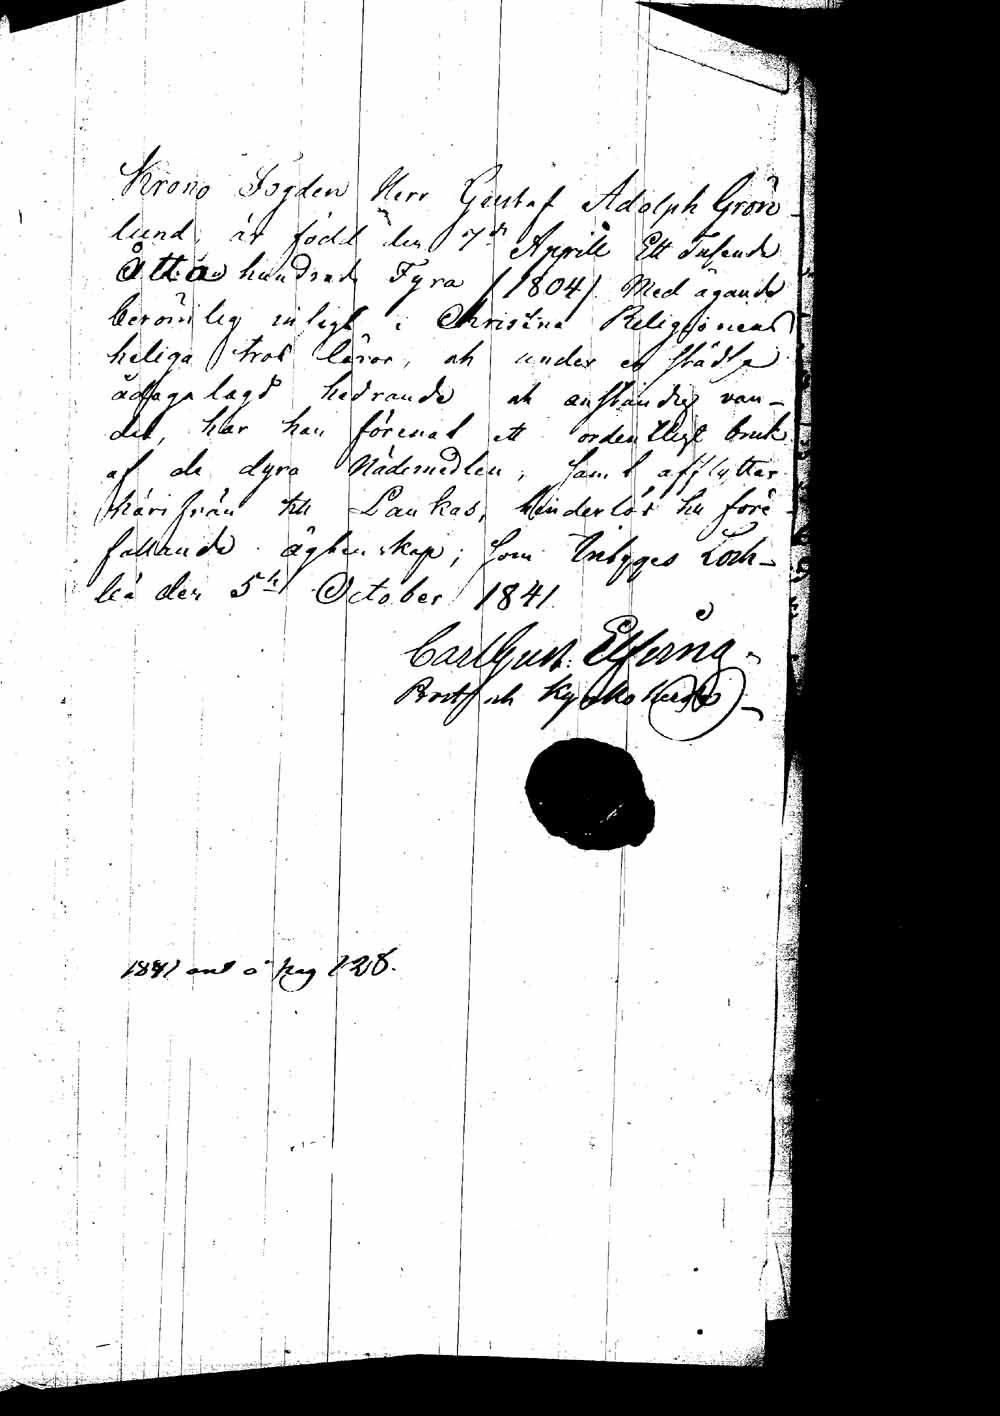 Krono Fogden Herr Gustaf Adolph Grön-
lund, är född den 7de Aprill Ett Tusende
Åtta hundrade Fyra /1804/. Med ägande
berömlig insigt i Christna Religionens
heliga tros läror, och under en städse
ådagalagd hedrande och anständig van-
del, har han förenat ett ordentligt bruk
af de dyra Nådemedlen, samt afflyttar
härifrån till Laukas, hinderlös till före-
fallande ägtenskap; som Intygas Loch-
teå den 5te October 1841.
Carl Gust. Elfving
Prost och Kyrkoherde
1841 ant å pag 128.